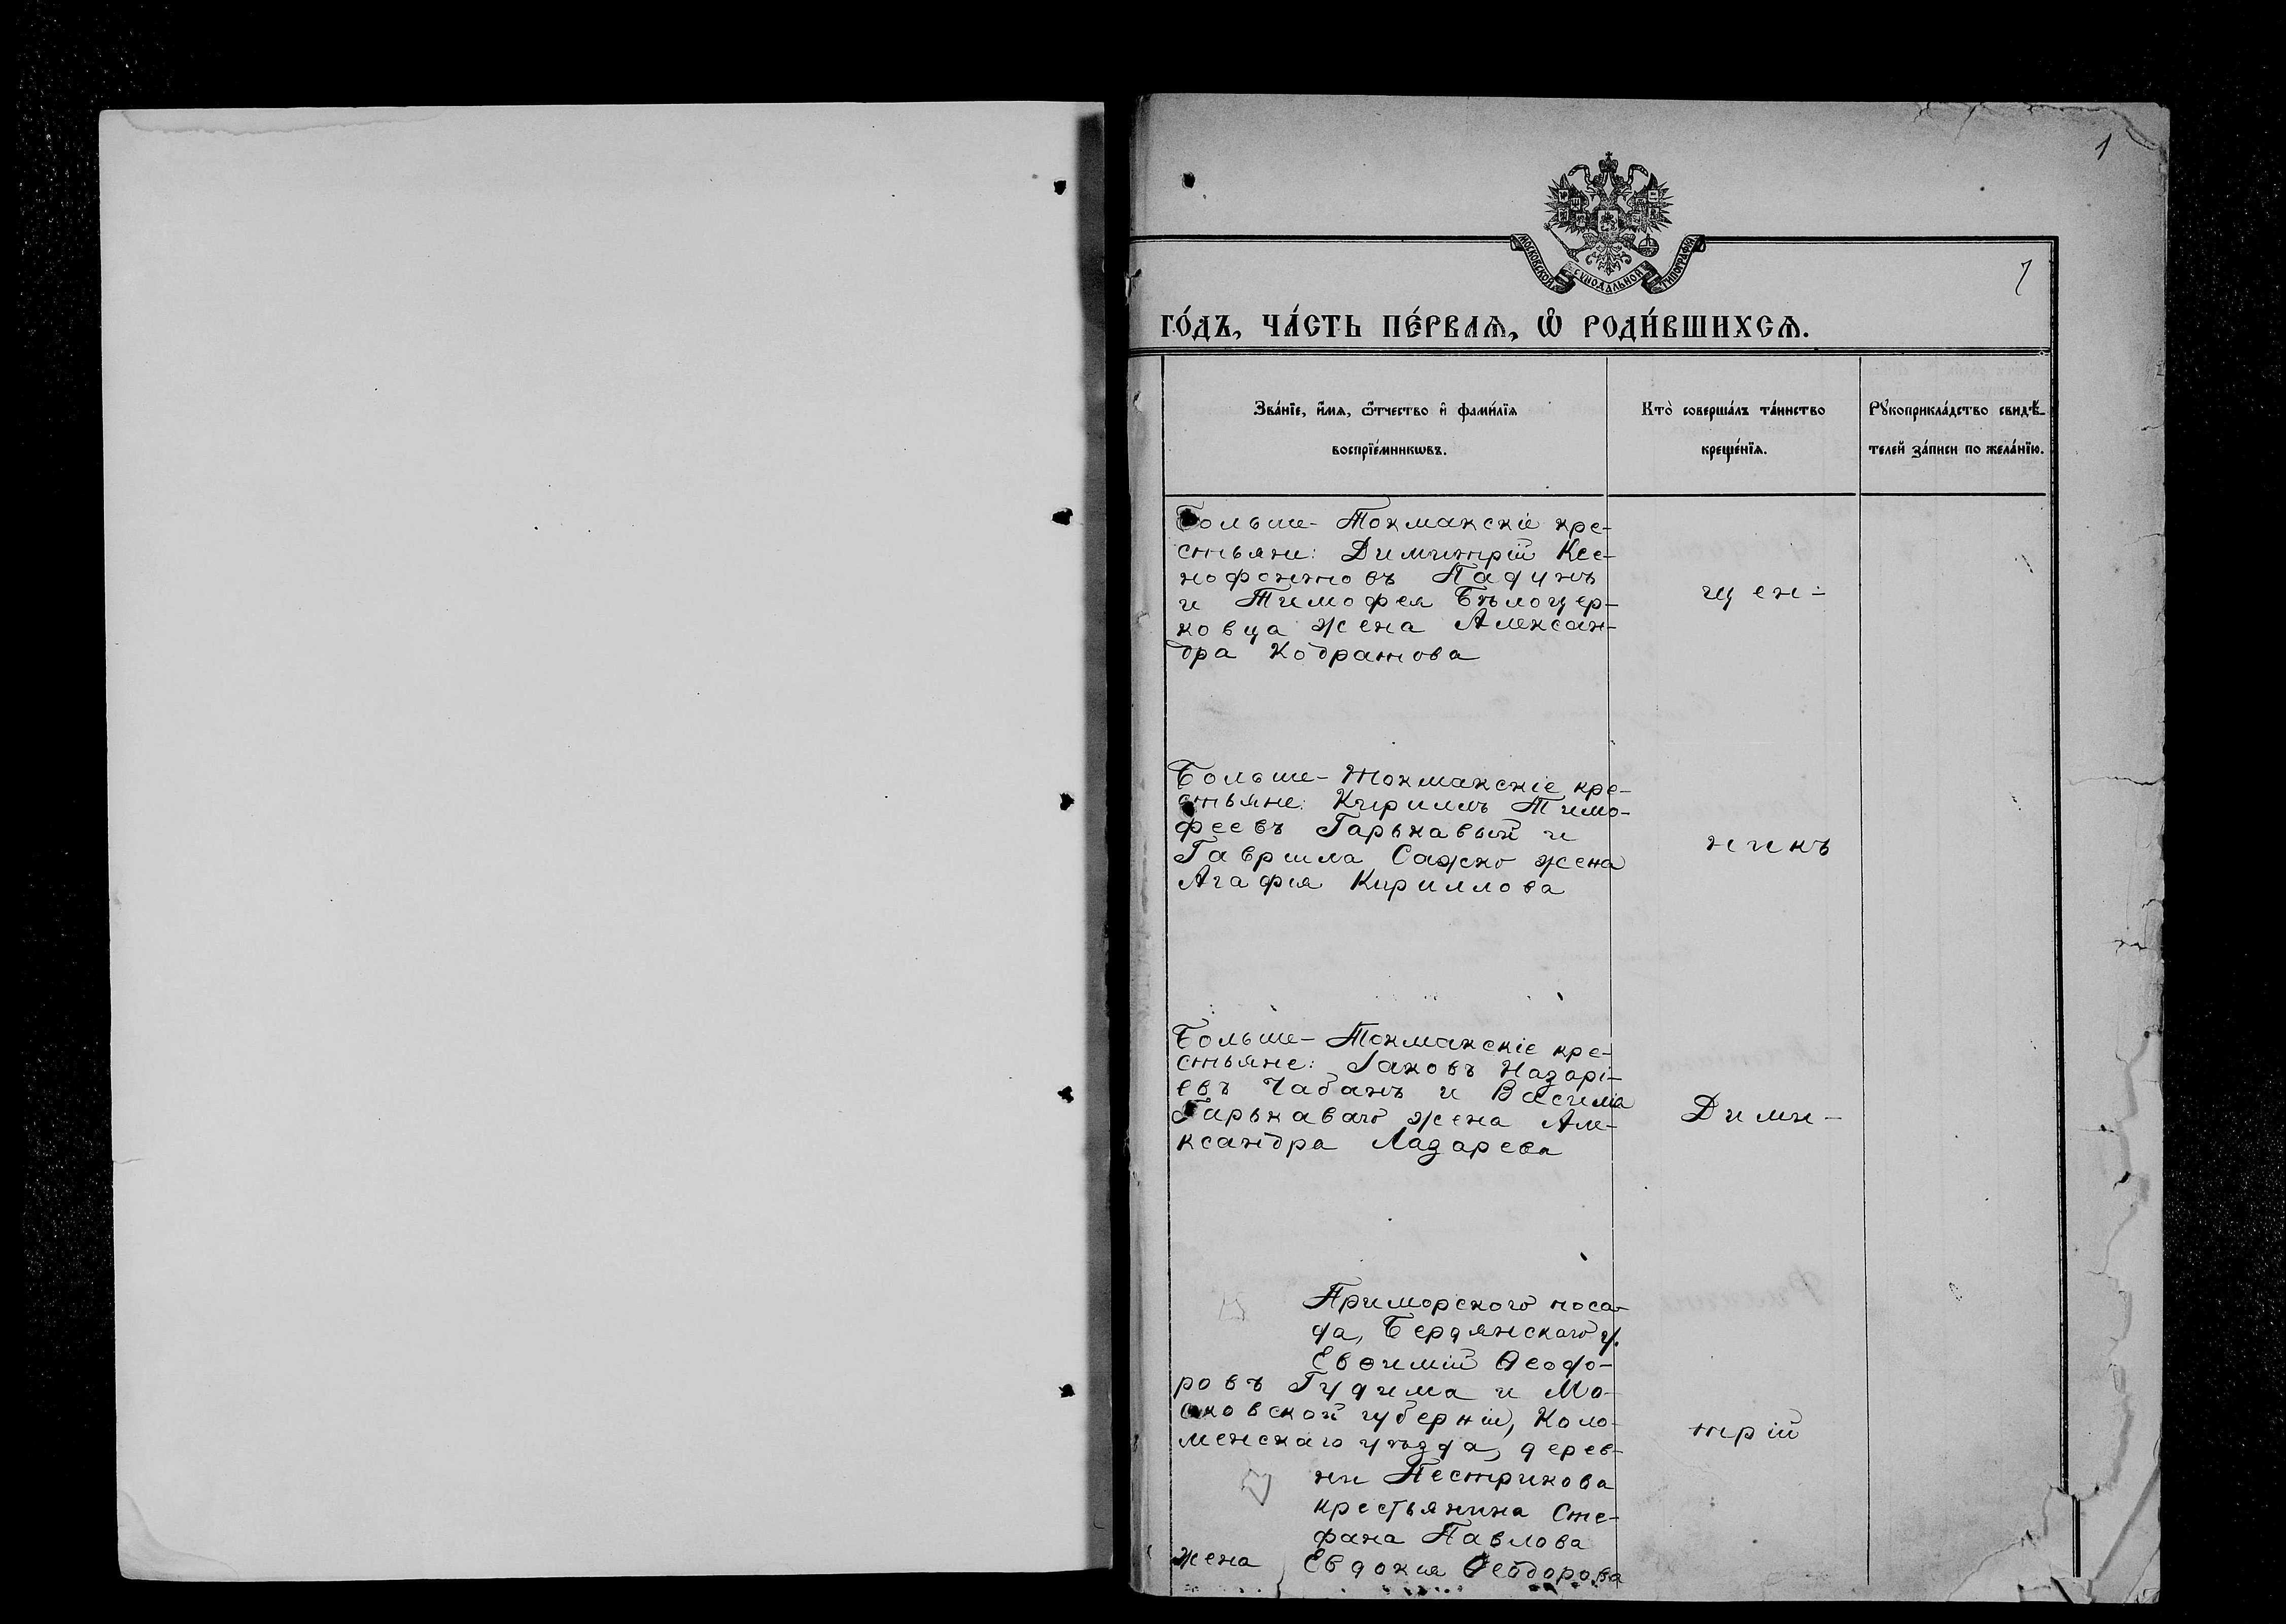 1
МОСКОВСКОЙ СѴНОДАЛЬНОЙ ТИПОГРАФІИ
1
го́дъ, ча́сть пе́рваѧ, ѡ҆ роди́вшихсѧ.
Зва́нїе, и҆́мѧ, ѻ҆́тчество и҆ фами́лїѧ
воспрїе́мникѡвъ.
Кто̀ соверша́лъ та́инство
креще́нїѧ.
Рꙋкоприкла́дство свидѣ́-
телей за́писи по жела́нїю.
Больше-Токмакскіе кре-
стьяне: Димитрій Ксе-
нофонтовъ Падунъ
и Тимофея Бѣлоцер-
ковца жена Алексан-
дра Кодратова
щен-
Больше-Токмакскіе кре-
стьяне: Кириллъ Тимо-
феевъ Гарькавый и
Гавріила Сажко жена
Агафія Кириллова
никъ
Больше-Токмакскіе кре-
стьяне: Іаковъ Назарі-
евъ Чабанъ и Василія
Гарькаваго жена Але-
ксандра Лазарева
Дими-
Приморского поса-
да, Бердянскаго у.
Евѳимій Ѳеодо-
ровъ Гудима и Мо-
сковской губерніи, Коло-
менскаго уѣзда, дерев-
ни Пестрикова
крестьянина Сте-
фана Павлова
жена Евдокія Ѳеодорова
трій